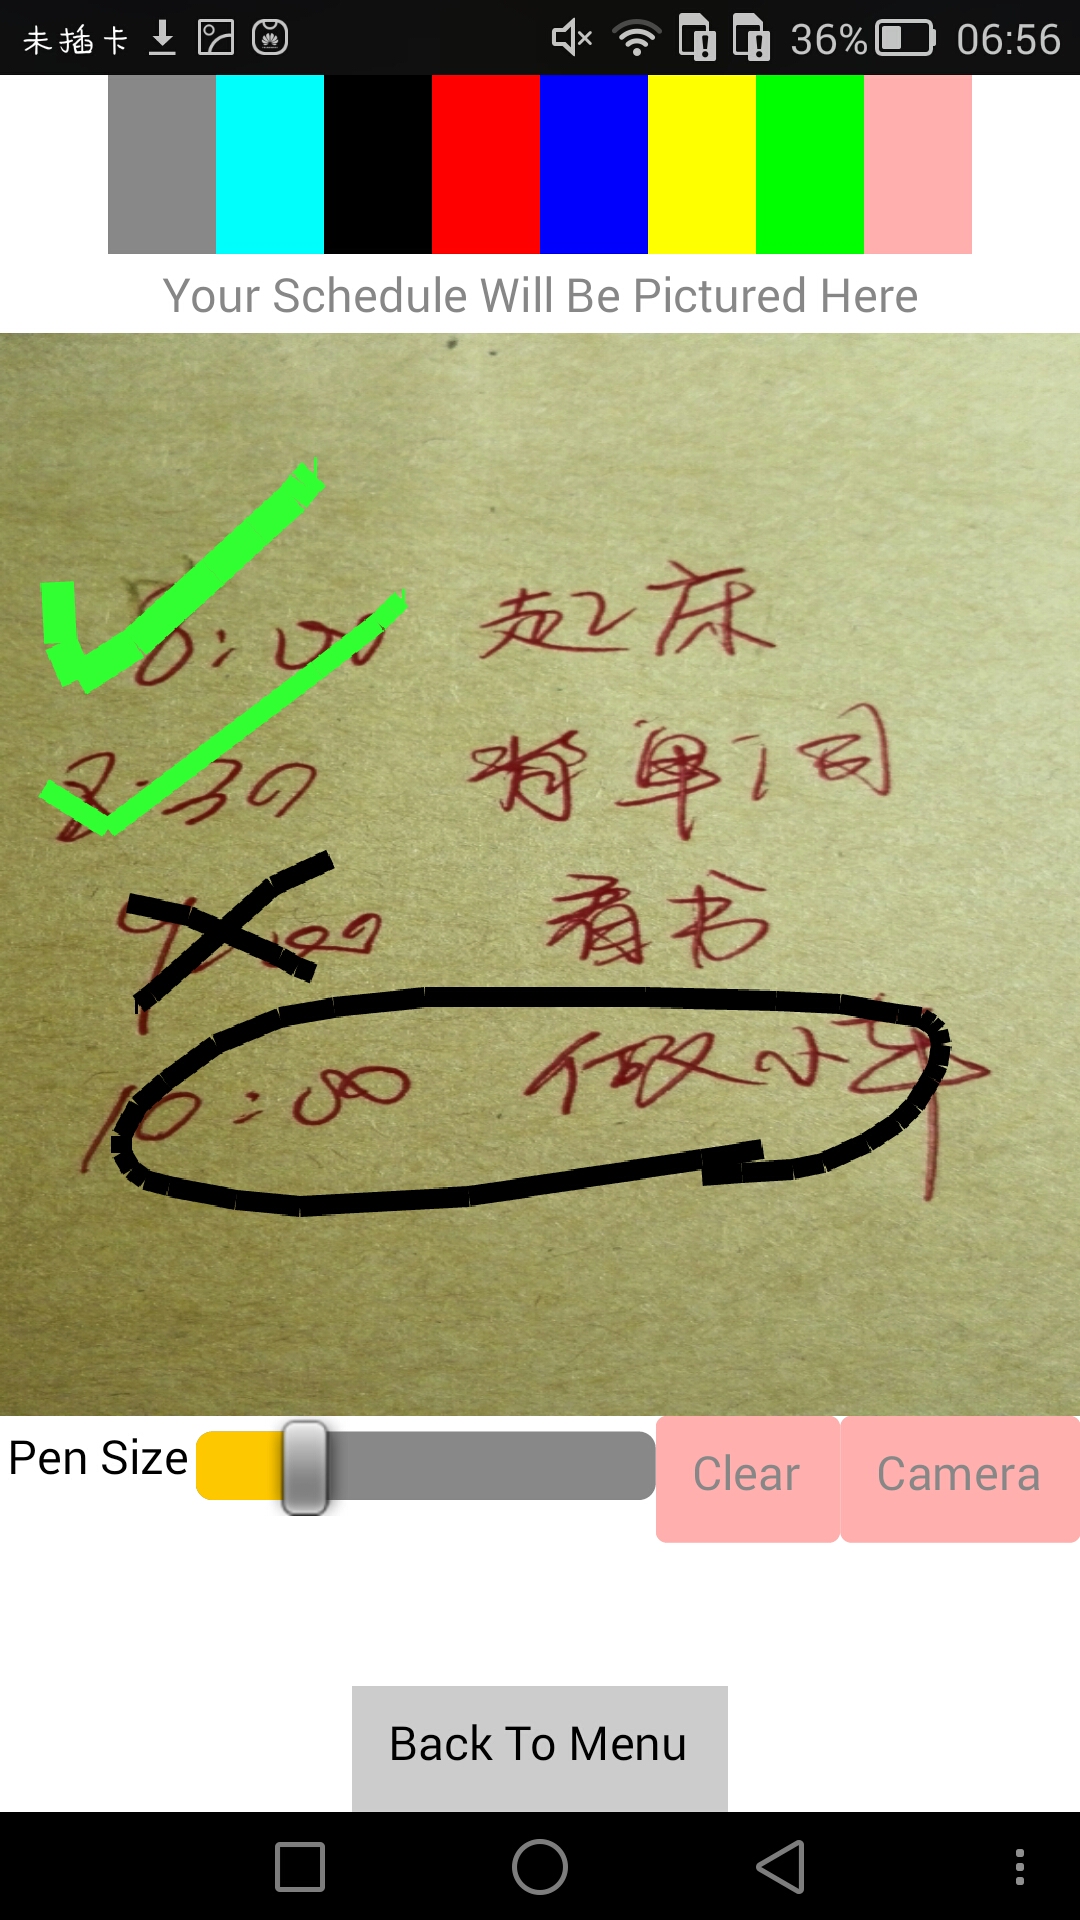 未插卡 36% 06:56
Your Schedule Will Be Pictured Here
8:00 起床
8:30 背单词
9:00 看书
10:00 做小车
Pen Size Clear Camera
Back To Menu